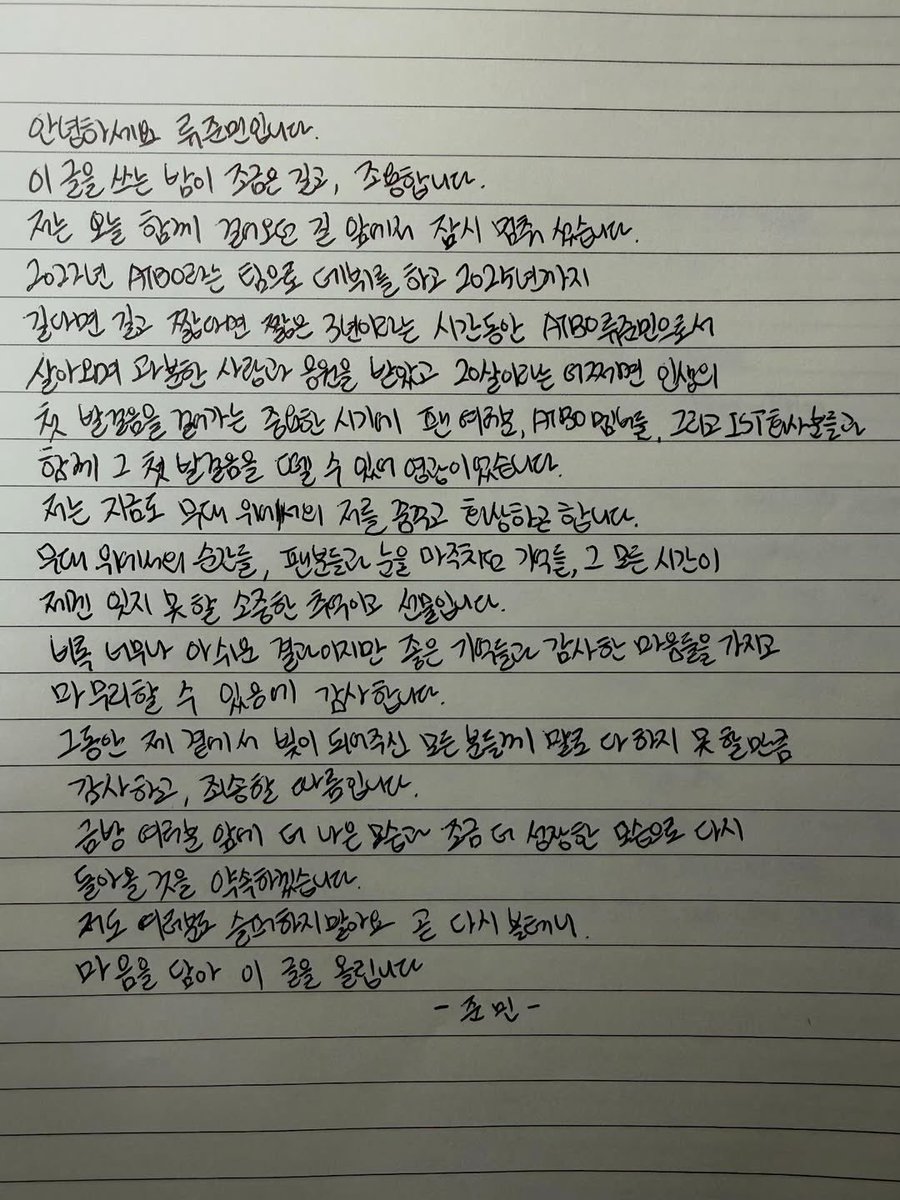 안녕하세요 류준민입니다.
이 글을 쓰는 밤이 조금은 길고, 조용합니다.
저는 오늘 함께 걸어오던 길 앞에서 잠시 멈춰 섰습니다.
2022년 ATBO라는 팀으로 데뷔를 하고 2025년까지
길다면 길고 짧다면 짧은 3년이라는 시간동안 ATBO 류준민으로서
살아오며 과분한 사랑과 응원을 받았고 20살이라는 어쩌면 인생의
첫 발걸음을 걸어가는 중요한 시기에 팬 여러분, ATBO 멤버들, 그리고 IST 회사분들과
함께 그 첫 발걸음을 뗄 수 있어 영광이었습니다.
저는 지금도 무대 위에서의 저를 꿈꾸고 회상하곤 합니다.
무대 위에서의 순간들, 팬분들과 눈을 마주치던 기억들, 그 모든 시간이
제겐 잊지 못 할 소중한 추억이고 선물입니다.
비록 너무나 아쉬운 결과이지만 좋은 기억들과 감사한 마음들을 가지고
마무리할 수 있음에 감사합니다.
그동안 제 곁에서 빛이 되어주신 모든 분들께 말로 다 하지 못 할만큼
감사하고, 죄송할 따름입니다.
금방 여러분 앞에 더 나은 모습과 조금 더 성장한 모습으로 다시
돌아올 것을 약속하겠습니다.
저도 여러분도 슬퍼하지말아요 곧 다시 볼테니.
마음을 담아 이 글을 올립니다
- 준민 -